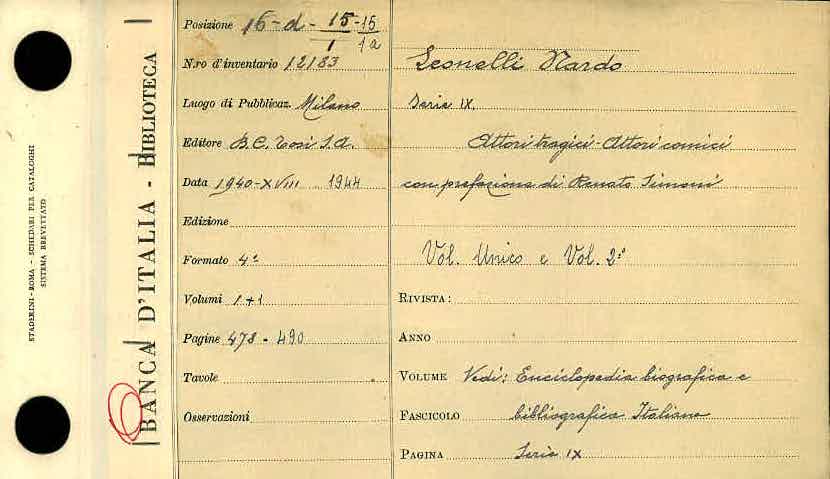 STADERINI-ROMA - SCHEDARI PER CATALOGHI
SISTEMA BREVETTATO
BANCA D'ITALIA - BIBLIOTECA
Posizione 16-d-15-15
1 1a
N.ro d'inventario 12183
Luogo di Pubblicaz. Milano
Editore B.C. Tosi S.A.
Data 1940-XVIII 1944
Edizione
Formato 4º
Volumi 1+1
Pagine 478 - 490
Tavole
Osservazioni
Leonelli Nardo
Serie IX.
Attori tragici - Attori comici
con prefazione di Renato Simoni
Vol. Unico e Vol. 2º
RIVISTA:
ANNO
VOLUME Vedi: Enciclopedia biografica e
FASCICOLO bibliografica Italiana
PAGINA Serie IX